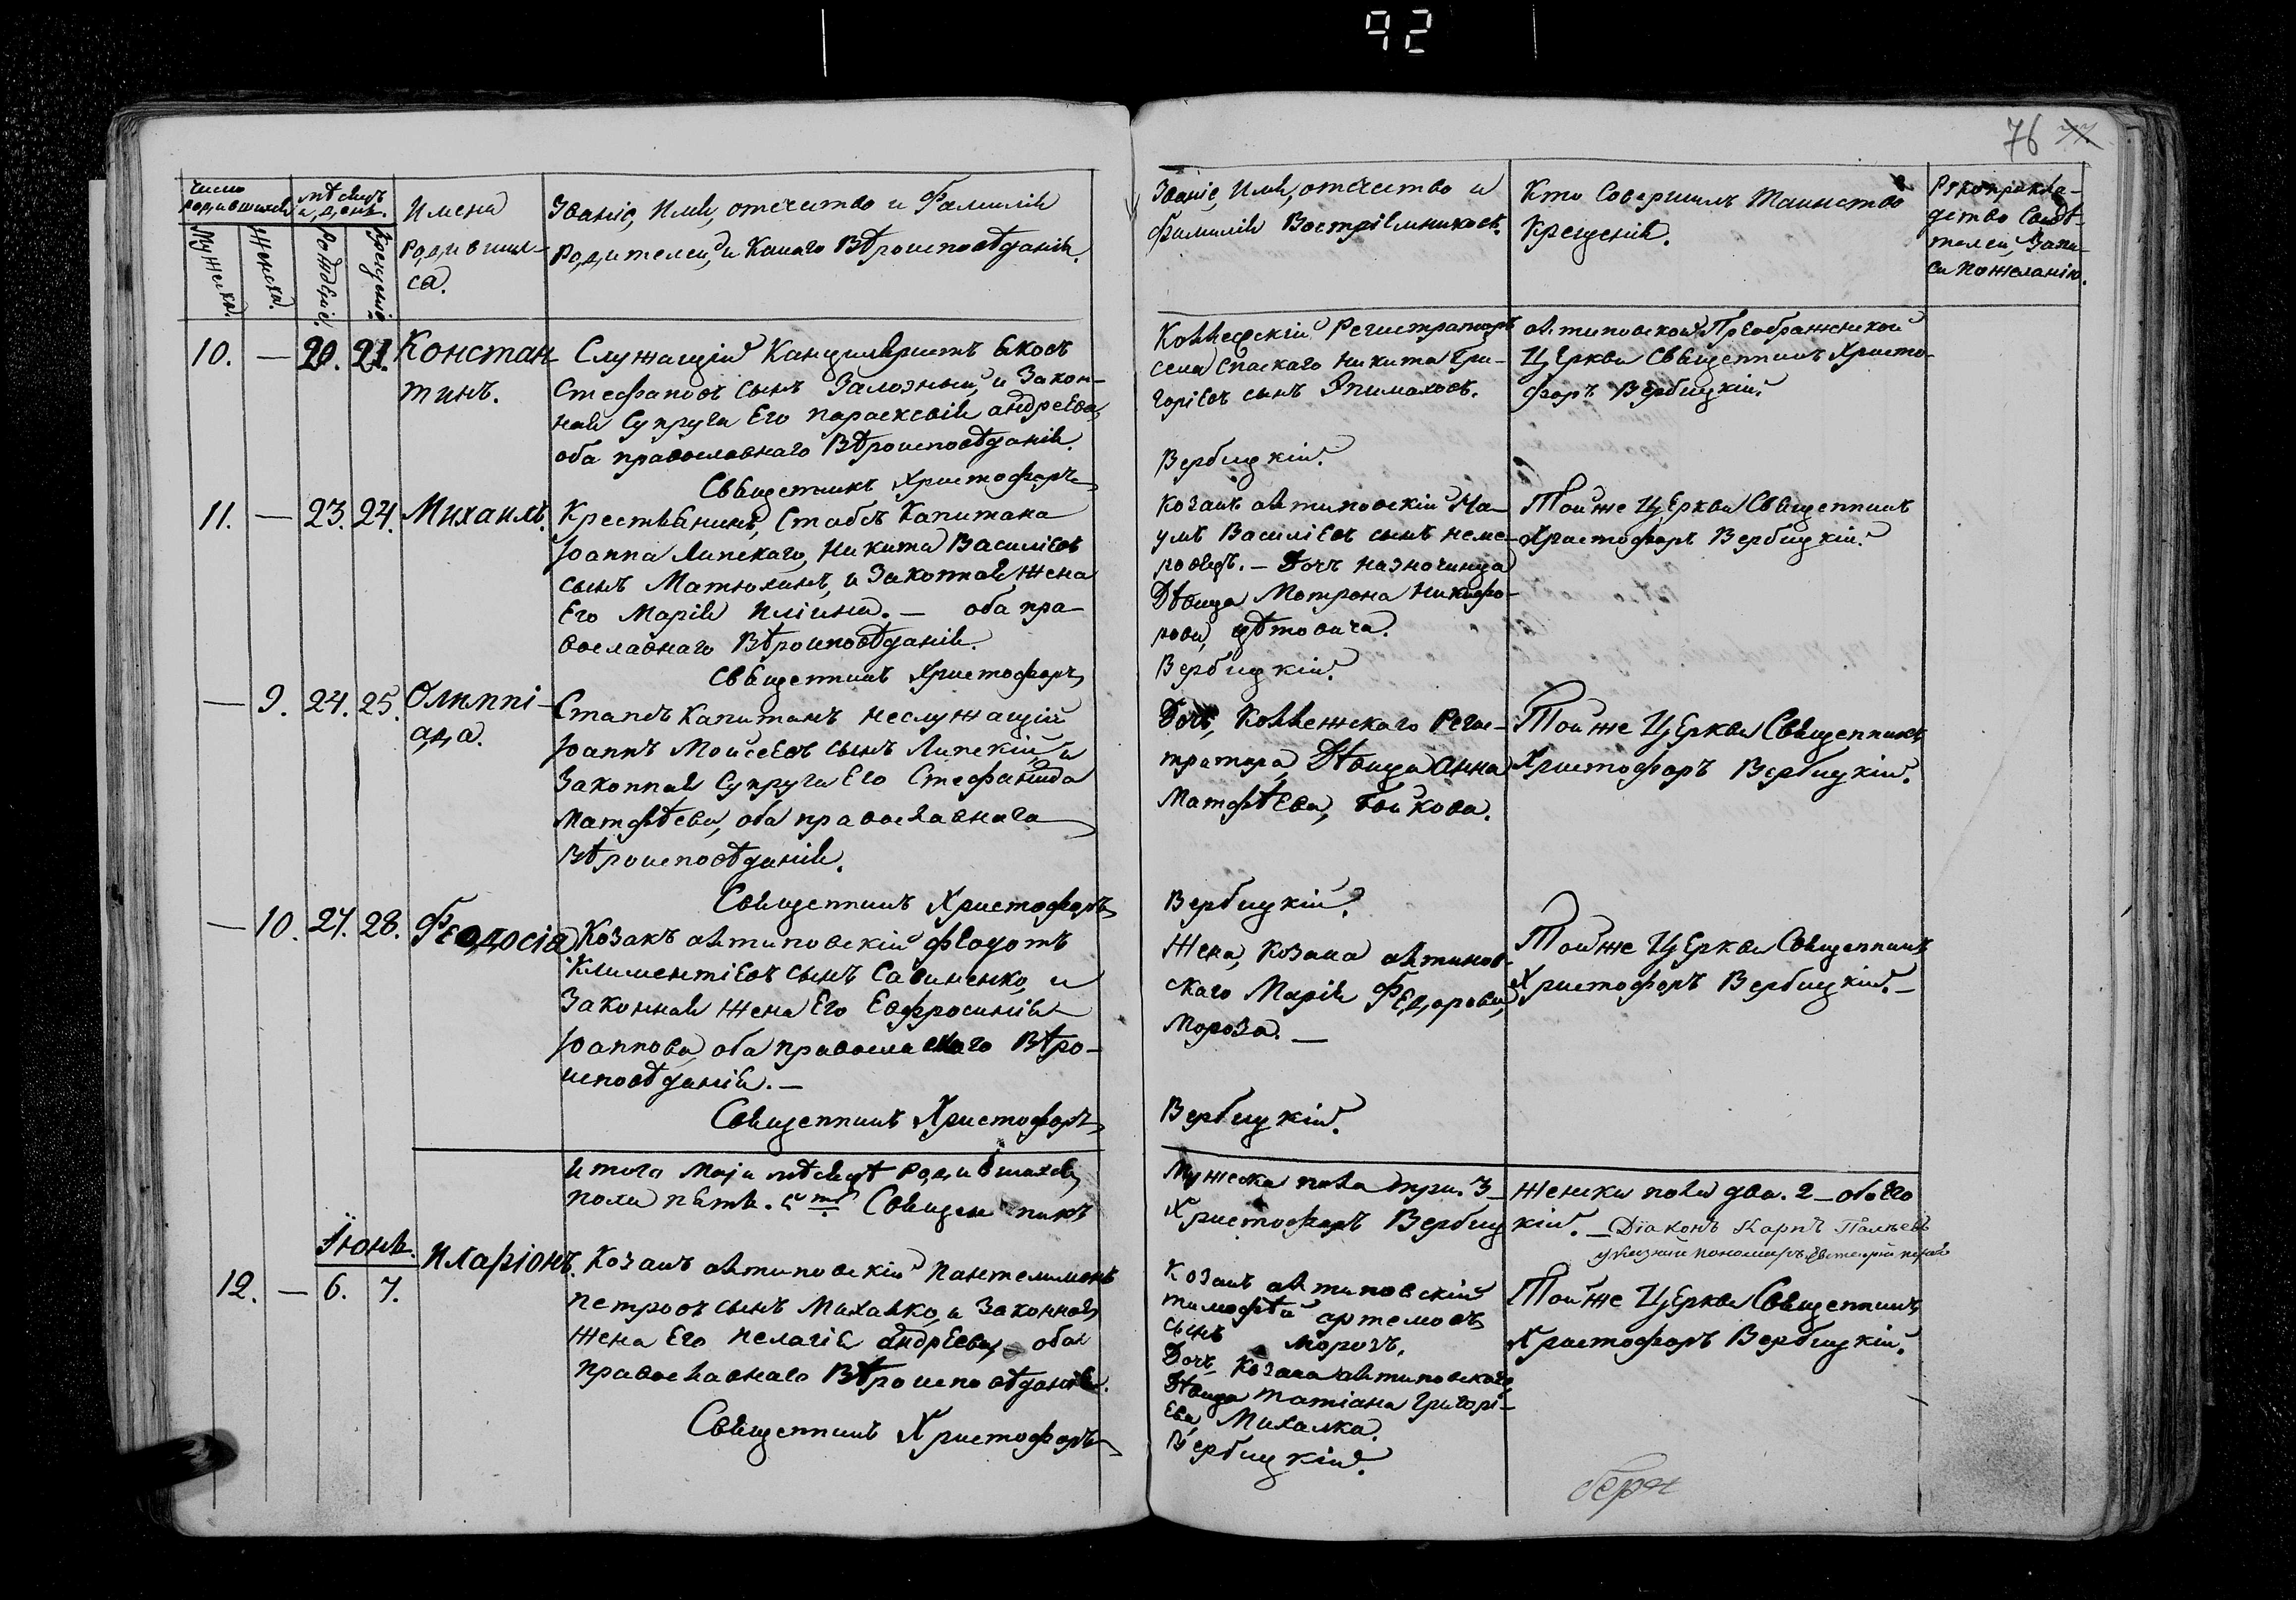 92
76 77
Число родившихся
Мѣсяцъ и день.
Имена
родивших-
ся.
Званіе, Имя, отечество и Фамилія
родителей, и Какого Вѣроисповѣданія.
Званіе, Имя, отечество и
Фамилія Воспріемниковъ.
Кто Совершилъ Таинство
Крещенія.
Рукоприклад-
ство Свидѣ-
телей, Запи-
си по желанію.
Мужеска.
Женска.
Рожденіе.
Крещеніе.
10. — 20. 21. Констан
тинъ.
Служащій Канцеляристъ Яковъ
Стефановъ сынъ Залозный, и Закон-
ная Супруга Его Параскевія Андреева,
оба православнаго Вѣроисповѣданія.
Священникъ Христофоръ
Коллежскій Регистраторъ
села Спаскаго Никита Гри-
горіевъ сынъ Эпимаховъ.
Вербицкій.
Преображенской
Церкви Священникъ Христо-
форъ Вербицкій.
11. — 23. 24. Михаилъ.
Крестьянинъ, Стабсъ Капитана
Іоанна Липскаго, Никита Василіевъ
сынъ Матюхинъ, и Законная Жена
Его Марія Иліина. — оба пра-
вославнаго Вѣроисповѣданія.
Священникъ Христофоръ
Козакъ Антиповскій На-
умъ Василіевъ сынъ
— Дочь
Дѣвица Мотрона Никифо-
рова,
Вербицкій.
Той же Церкви Священникъ
Христофоръ Вербицкій.
— 9. 24. 25. Олимпі-
ада.
Стапсъ Капитанъ неслужащій
Іоаннъ Мойсеевъ сынъ Липскій, и
Законная Супруга Его Стефанида
Матфѣева, оба православнаго
Вѣроисповѣданія.
Священникъ Христофоръ
Дочь, Коллежскаго Реги-
тратора, Дѣвица Анна
Матфѣева, Бойкова.
Вербицкій.
Той же Церкви Священникъ
Христофоръ Вербицкій.
— 10. 27. 28. Феодосіа
Козакъ Антиповскій Федотъ
Климентіевъ сынъ Савиненко, и
Законная Жена Его Евфросинія
Іоаннова, оба православнаго Вѣро-
исповѣданія. —
Священникъ Христофоръ
Жена, Козака Антипов-
скаго Марія Федорова,
Мороза. —
Вербицкій.
Той же Церкви Священникъ
Христофоръ Вербицкій. —
Итого Маія мѣсяцѣ родившихся,
Мужеска пола три. 3 — женска пола два. 2 — обоего
пола пять. 5. Священникъ
Христофоръ Вербицкій. — Діаконъ Карпъ
Іюнь.
12. — 6. 7. Иларіонъ.
Козакъ Антиповскій Пантелимонъ
Петровъ сынъ Михалко, и Законная
Жена Его Пелагія Андреева, оба
православнаго Вѣроисповѣданія.
Священникъ Христофоръ
Козакъ Антиповскій
Тимофѣй Артемовъ
сынъ Морозъ.
Дочь Козака Антиповскаго,
Дѣвица Татіана Григорі-
ева, Михалка.
Вербицкій.
Той же Церкви Священникъ
Христофоръ Вербицкій.